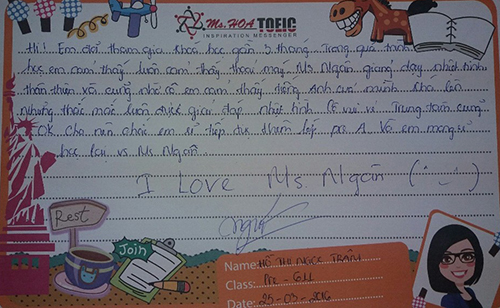 Ms. HOA TOEIC
INSPIRATION MESSENGER
Hi! Em đã tham gia khoá học gần 3 tháng. Trong quá trình
học em cảm thấy luôn cảm thấy thoải mái, Ms Ngân giảng dạy nhiệt tình
thân thiện vô cùng nhờ cô em cảm thấy tiếng Anh của mình khá lên
Những thắc mắc luôn được giải đáp nhiệt tình. Cơ vui vẻ, Trung tâm cũng
OK cho nên chắc em sẽ tiếp tục thêm lớp pre A. Và em mong sẽ
học lại vs Ms Ngân.
I Love Ms Ngân
Rest
Join
Name: HỒ THỊ NGỌC TRÂM
Class:
Date: 25-03-2016